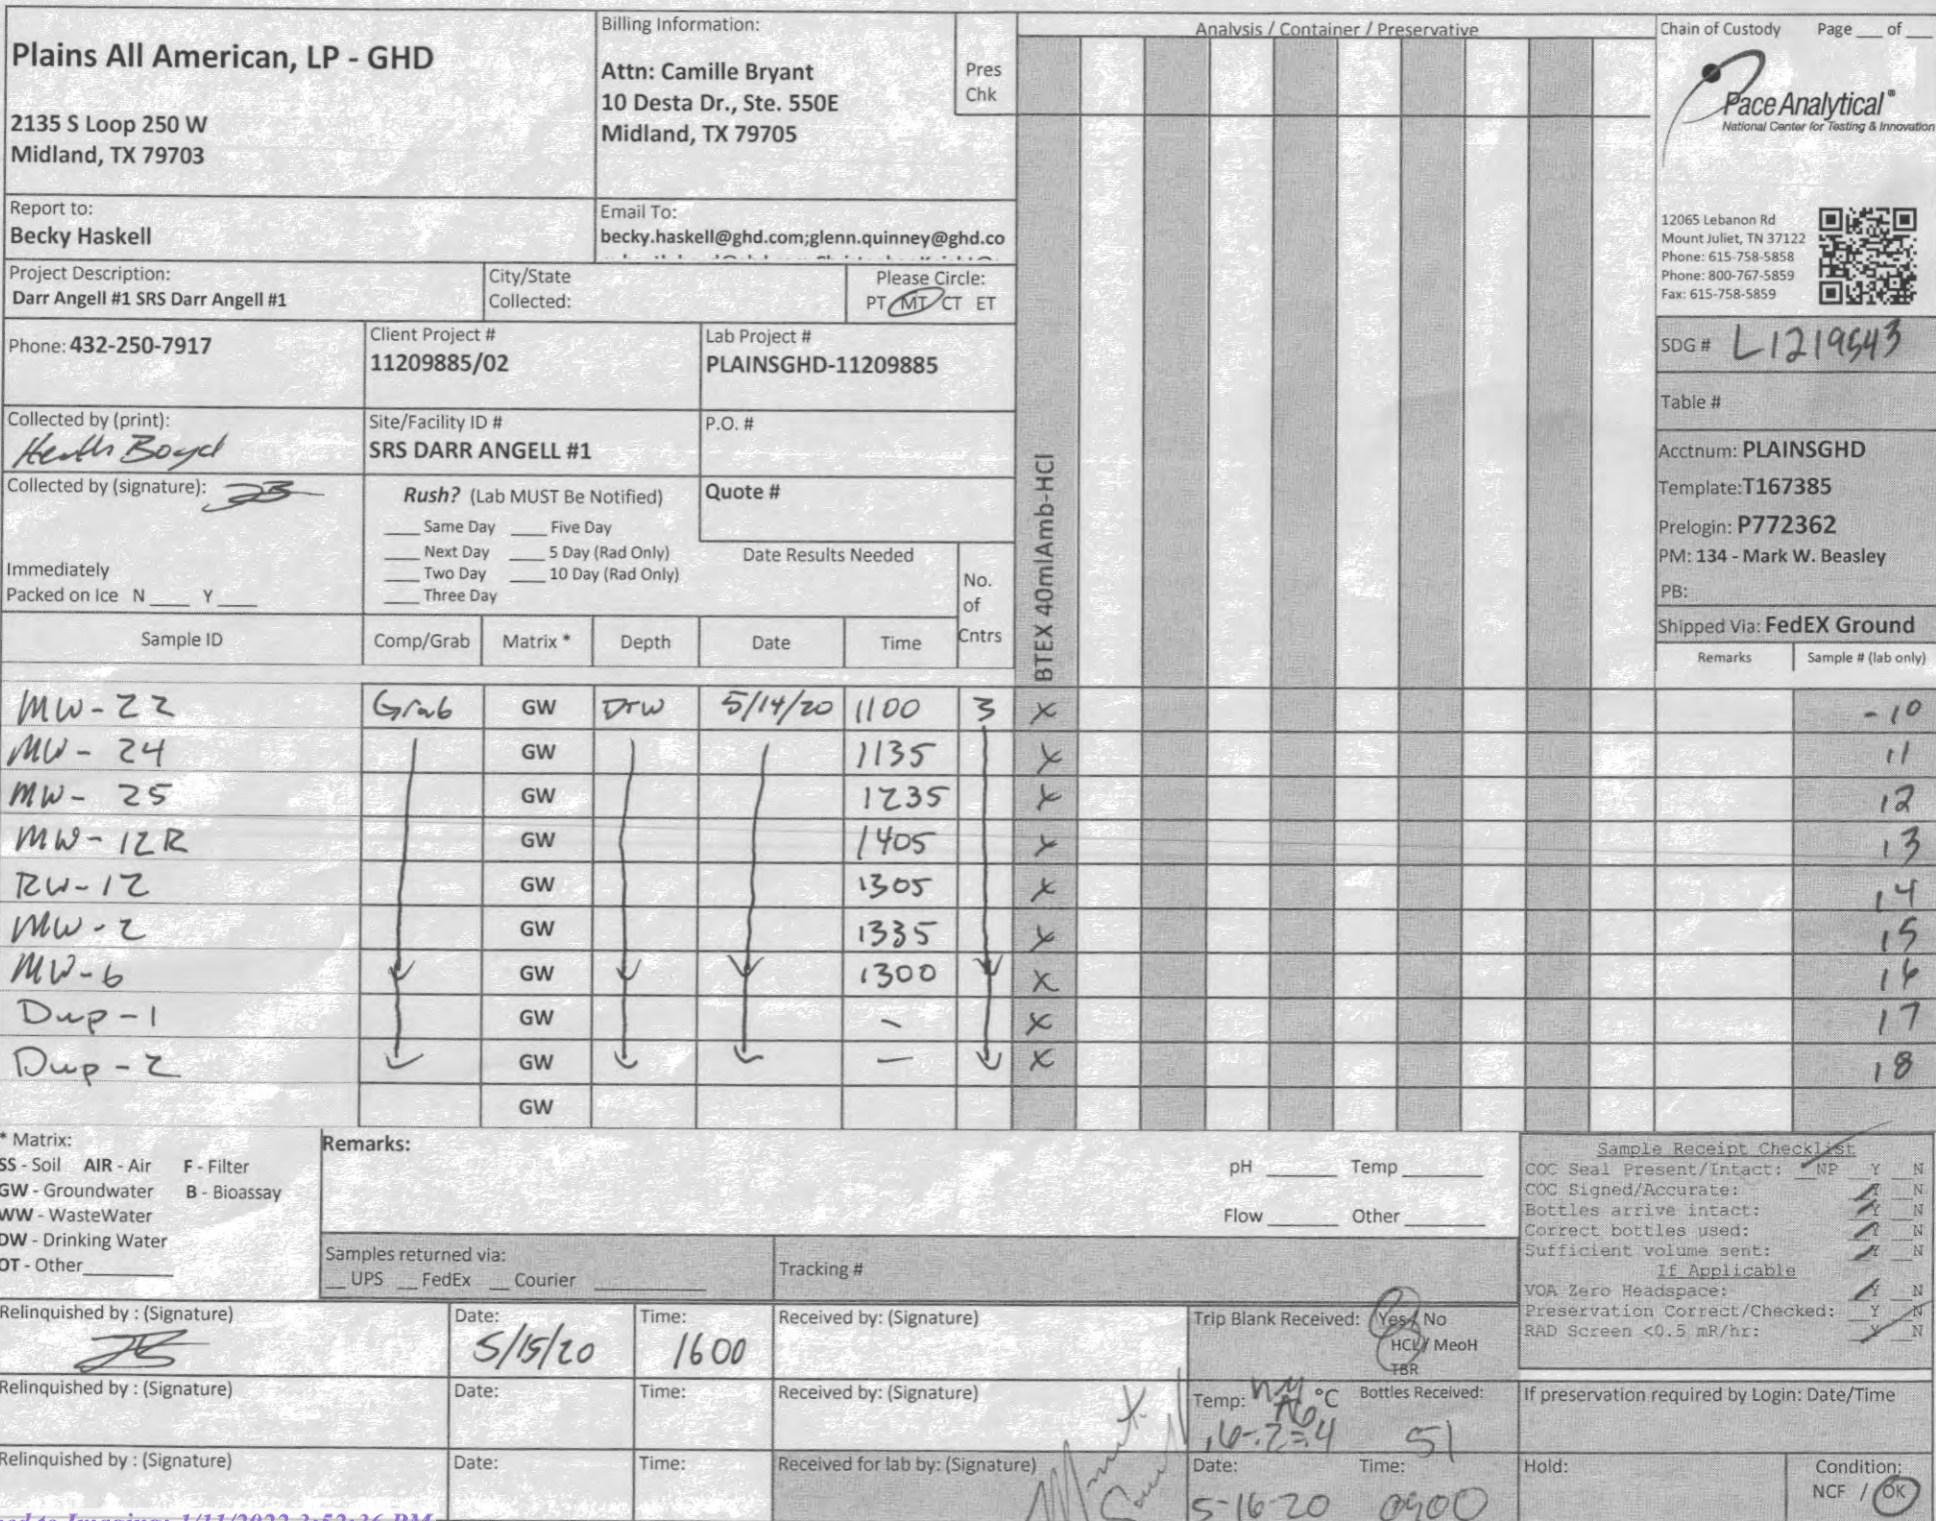 Plains All American, LP - GHD
2135 S Loop 250 W
Midland, TX 79703
Billing Information:
Attn: Camille Bryant
10 Desta Dr., Ste. 550E
Midland, TX 79705
Pres
Chk
Analysis / Container / Preservative
Chain of Custody Page ___ of ___
Pace Analytical®
National Center for Testing & Innovation
12065 Lebanon Rd
Mount Juliet, TN 37122
Phone: 615-758-5858
Phone: 800-767-5859
Fax: 615-758-5859
Report to:
Becky Haskell
Email To:
becky.haskell@ghd.com;glenn.quinney@ghd.co
Project Description:
Darr Angell #1 SRS Darr Angell #1
City/State
Collected:
Please Circle:
PT MT CT ET
Phone: 432-250-7917
Client Project #
11209885/02
Lab Project #
PLAINSGHD-11209885
SDG # L1219543
Table #
Collected by (print):
Heath Boyd
Site/Facility ID #
SRS DARR ANGELL #1
P.O. #
Acctnum: PLAINSGHD
Template:T167385
Prelogin: P772362
PM: 134 - Mark W. Beasley
PB:
Shipped Via: FedEX Ground
Collected by (signature):
Rush? (Lab MUST Be Notified)
___ Same Day ___ Five Day
___ Next Day ___ 5 Day (Rad Only)
___ Two Day ___ 10 Day (Rad Only)
___ Three Day
Quote #
Date Results Needed
Immediately
Packed on Ice N ___ Y ___
No.
of
Cntrs
BTEX 40mlAmb-HCl
Sample ID Comp/Grab Matrix * Depth Date Time Remarks Sample # (lab only)
MW-22 Grab GW DTW 5/14/20 1100 3 X -10
MW-24 GW 1135 X 11
MW-25 GW 1235 X 12
MW-12R GW 1405 X 13
RW-12 GW 1305 X 14
MW-2 GW 1335 X 15
MW-6 GW 1300 X 16
Dup-1 GW - X 17
Dup-2 GW - X 18
GW
* Matrix:
SS - Soil AIR - Air F - Filter
GW - Groundwater B - Bioassay
WW - WasteWater
DW - Drinking Water
OT - Other
Remarks:
pH ___ Temp ___
Flow ___ Other ___
Samples returned via:
__ UPS __ FedEx __ Courier
Tracking #
Sample Receipt Checklist
COC Seal Present/Intact: NP Y N
COC Signed/Accurate: Y N
Bottles arrive intact: Y N
Correct bottles used: Y N
Sufficient volume sent: Y N
If Applicable
VOA Zero Headspace: Y N
Preservation Correct/Checked: Y N
RAD Screen <0.5 mR/hr: Y N
Relinquished by : (Signature)
Date: 5/15/20
Time: 1600
Received by: (Signature)
Trip Blank Received: Yes / No
HCL / MeoH
TBR
Relinquished by : (Signature)
Date:
Time:
Received by: (Signature)
Temp: °C
.6-.2=.4
Bottles Received:
51
If preservation required by Login: Date/Time
Relinquished by : (Signature)
Date:
Time:
Received for lab by: (Signature)
Date: 5-16-20
Time: 0900
Hold:
Condition:
NCF / OK